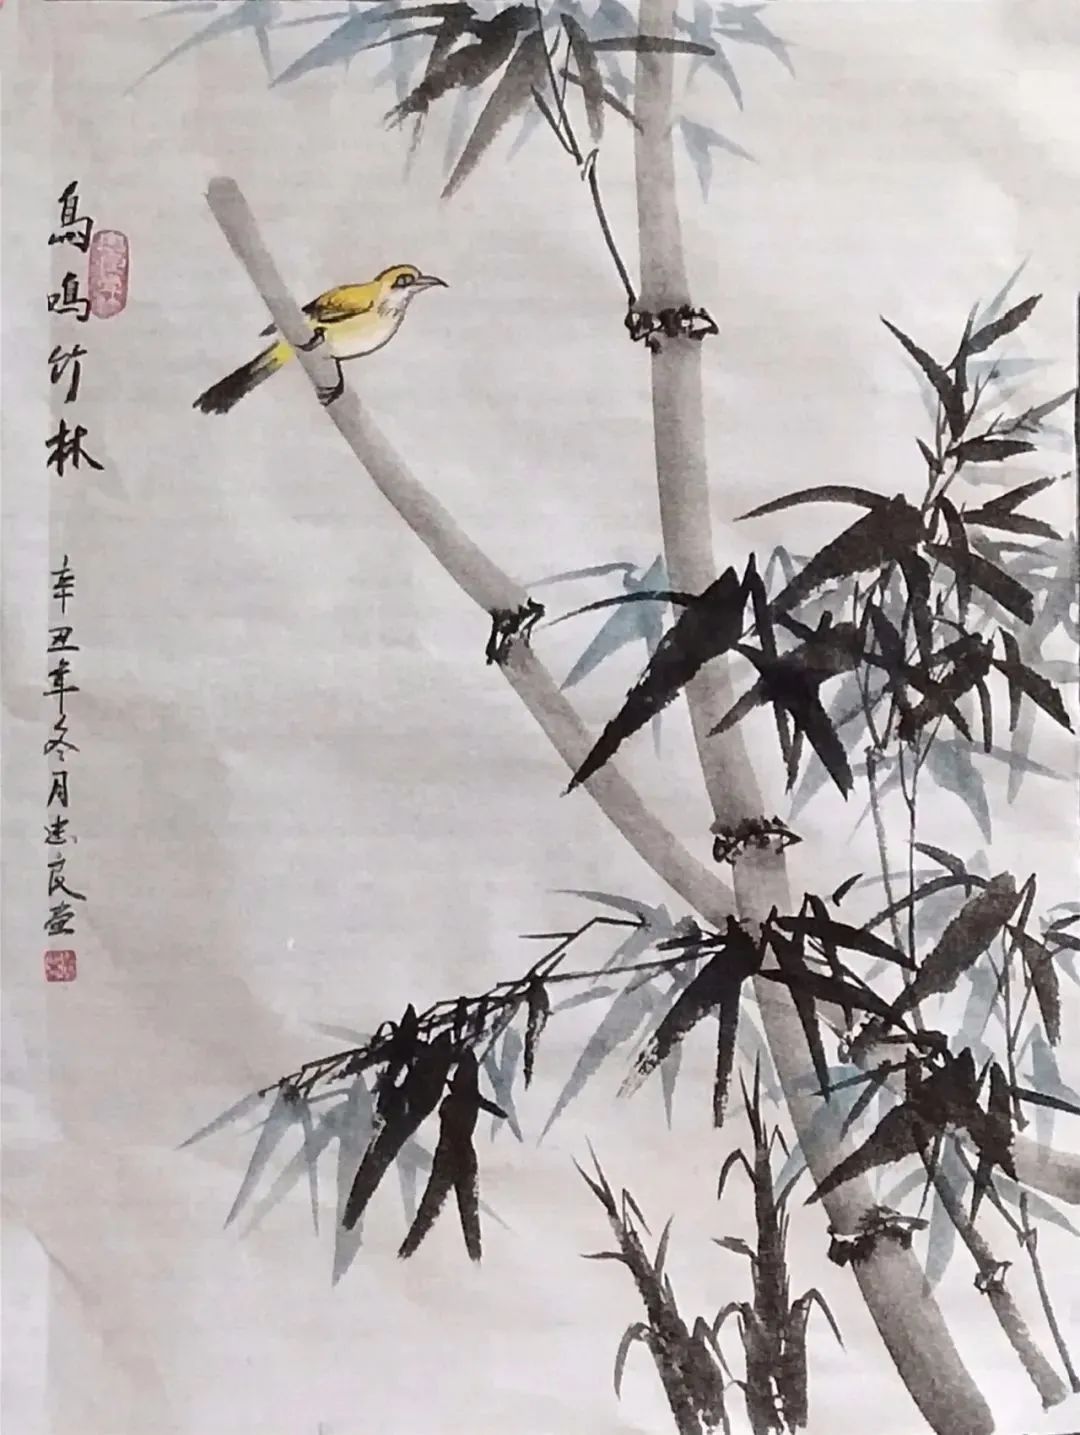 鳥鳴竹林
辛丑年冬月忠良画